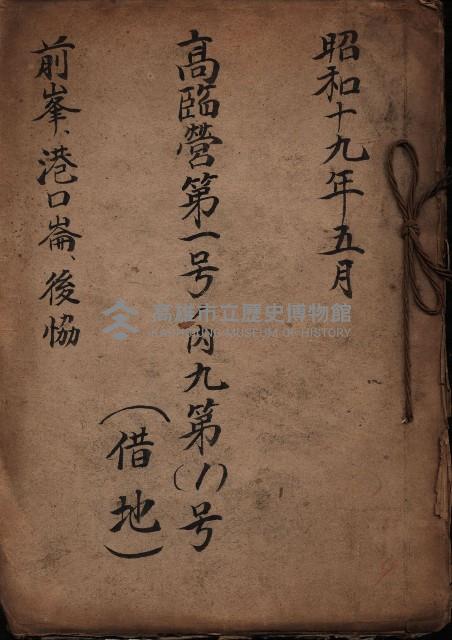 昭和十九年五月
高臨營第一号内九第(1)号
(借地)
前峯、港口崙、後協
高雄市立歷史博物館
KAOHSIUNG MUSEUM OF HISTORY